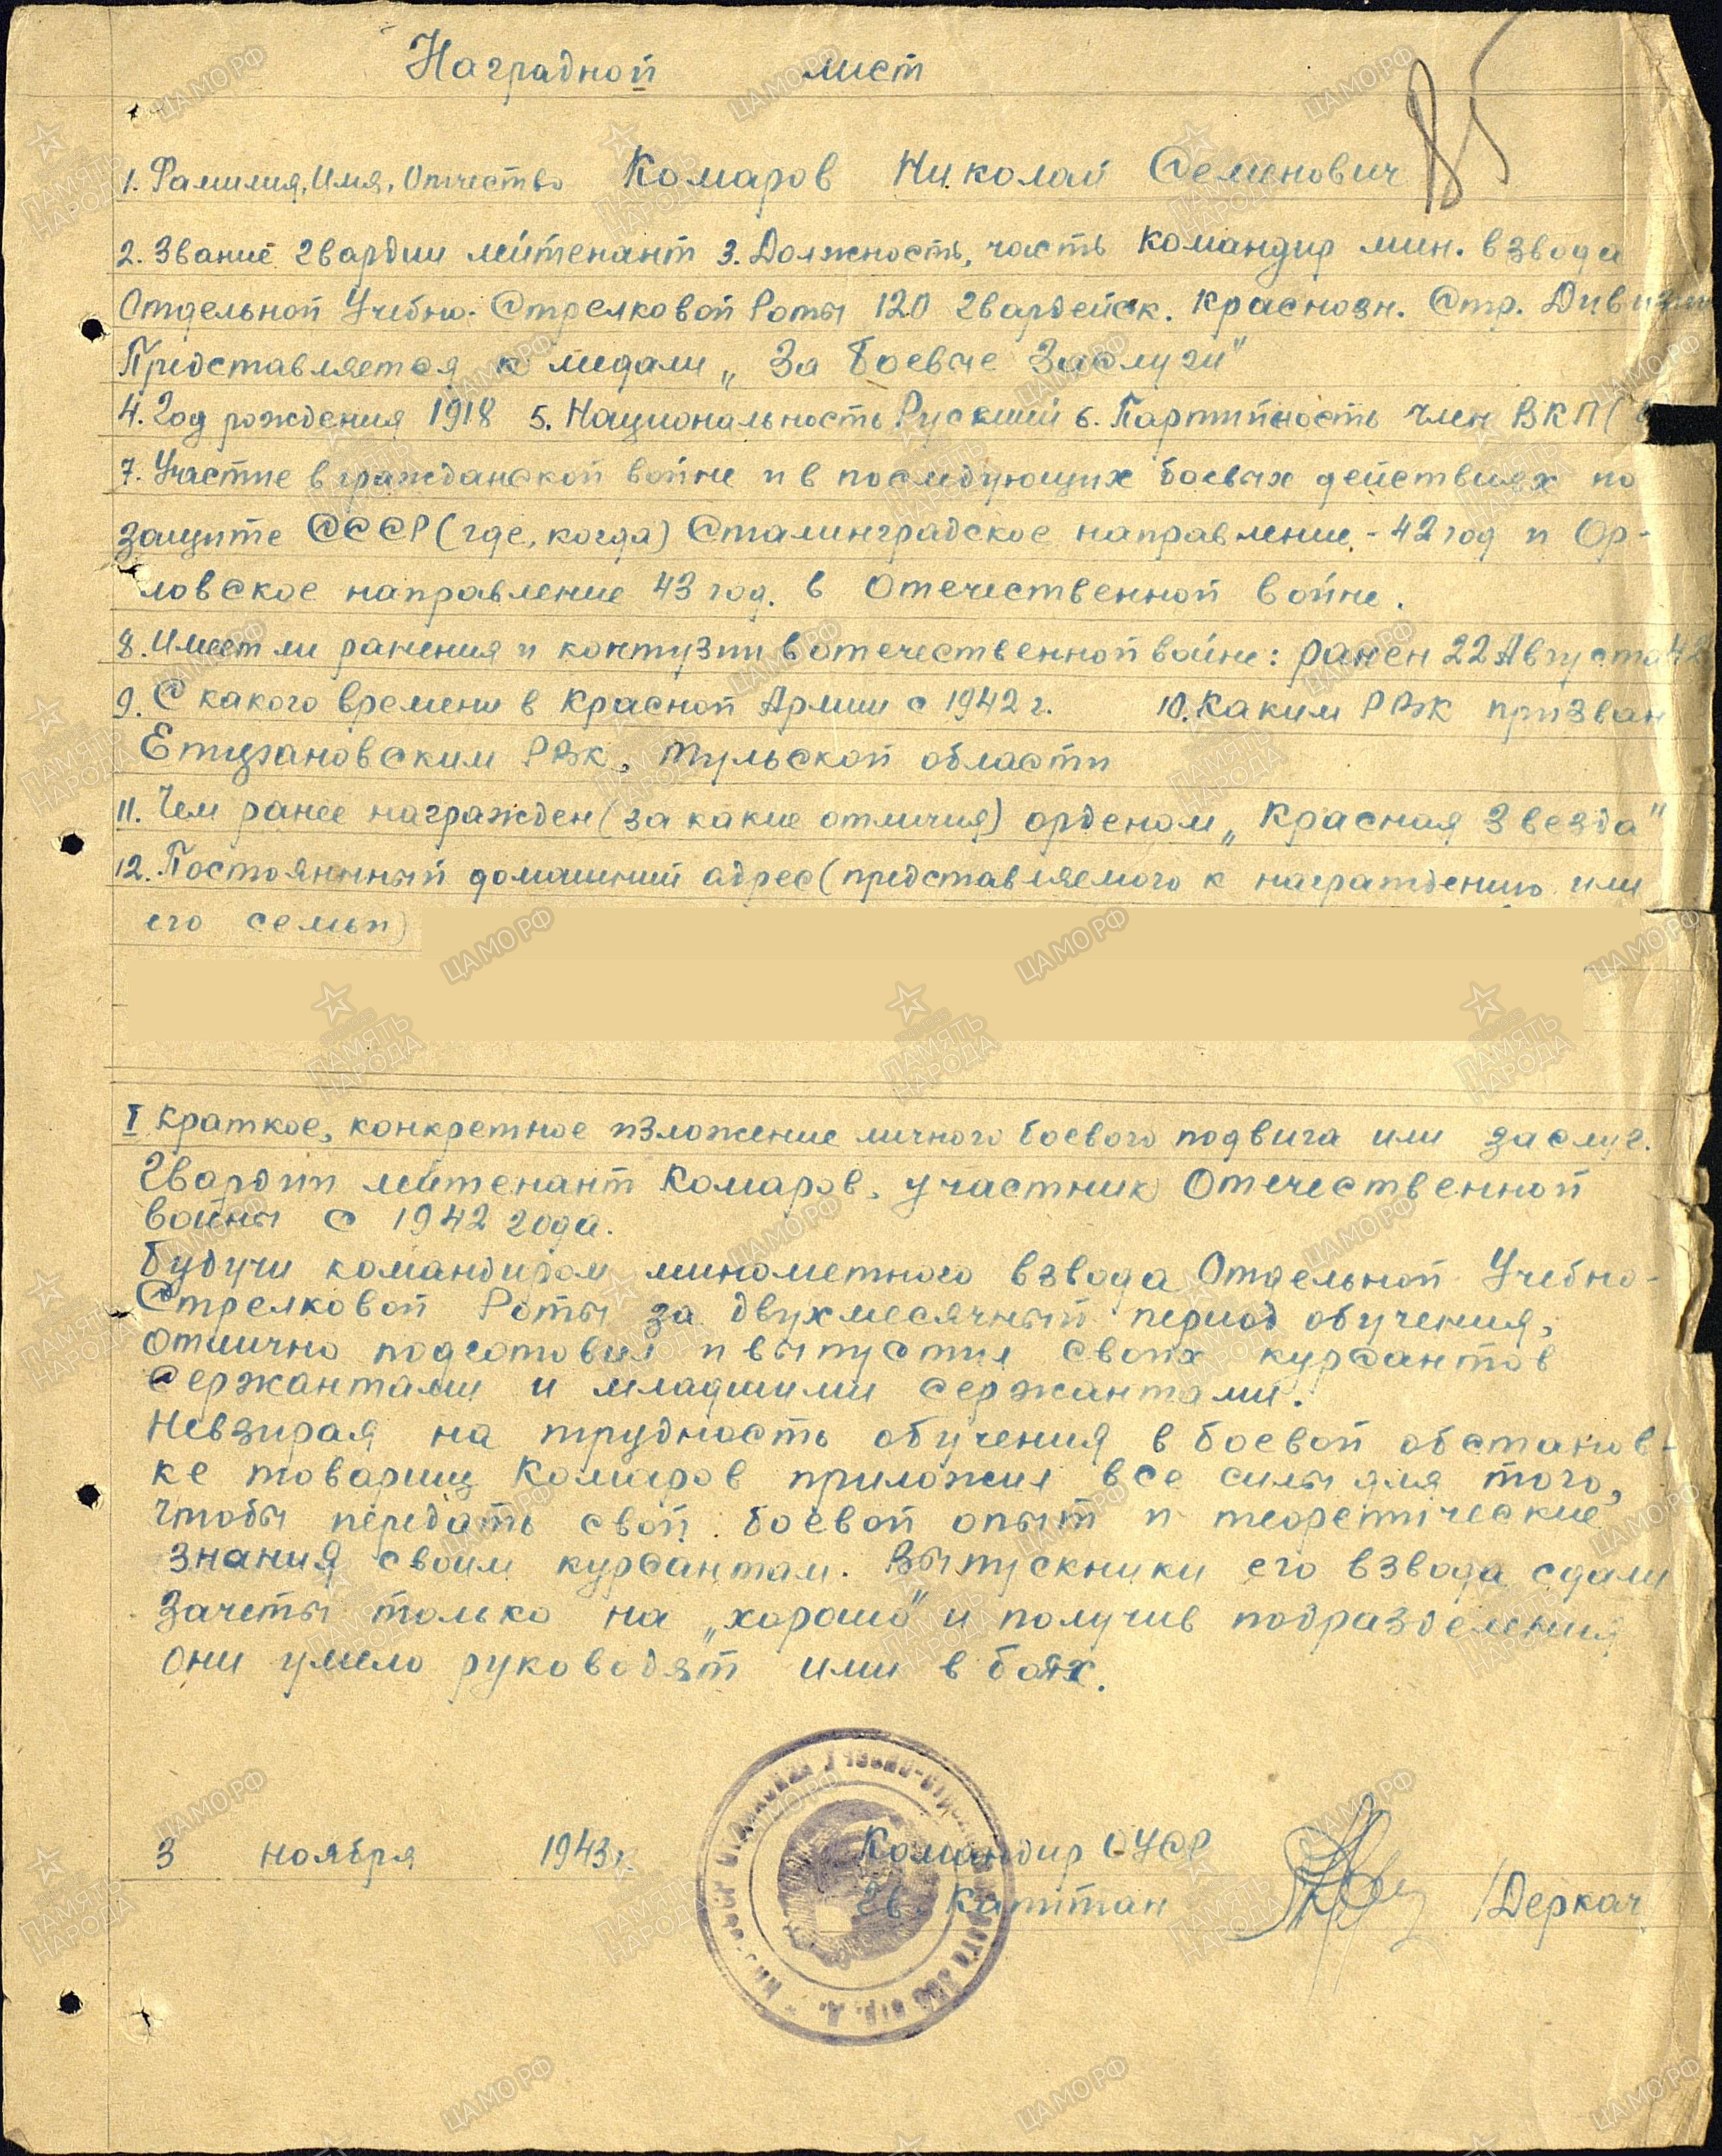 Наградной лист
85
1. Фамилия, Имя, Отчество Комаров Николай Семенович
2. Звание гвардии лейтенант 3. Должность, часть Командир мин. взвода
Отдельной Учебно-Стрелковой Роты 120 гвардейск. Краснозн. Стр. Дивизии
Представляется к медали „За Боевые Заслуги"
4. Год рождения 1918 5. Национальность Русский 6. Партийность член ВКП(
7. Участие в гражданской войне и в последующих боевых действиях по
защите СССР (где, когда) Сталинградское направление - 42 год и Ор-
ловское направление 43 год. в Отечественной войне.
8. Имеет ли ранения и контузии в отечественной войне: ранен 22 Августа 42
9. С какого времени в Красной Армии с 1942 г. 10. Каким РВК призван
РВК, Тульской области
11. Чем ранее награжден (за какие отличия) орденом „Красная Звезда"
12. Постоянный домашний адрес (представляемого к награждению или
его семьи)
I Краткое, конкретное изложение личного боевого подвига или заслуг.
Гвардии лейтенант Комаров, участник Отечественной
войны с 1942 года.
Будучи командиром минометного взвода Отдельной Учебно-
Стрелковой Роты за двухмесячный период обучения,
отлично подготовил и выпустил своих курсантов
сержантами и младшими сержантами.
Невзирая на трудность обучения в боевой обстанов-
ке товарищ Комаров приложил все силы для того,
чтобы передать свой боевой опыт и теоретические
знания своим курсантам. Выпускники его взвода сдали
зачеты только на „хорошо" и получив подразделения
они умело руководят ими в боях.
3 ноября 1943 г.
Командир ОУСР
Гв. Капитан /Деркач
ЦАМО.РФ
ПАМЯТЬ НАРОДА